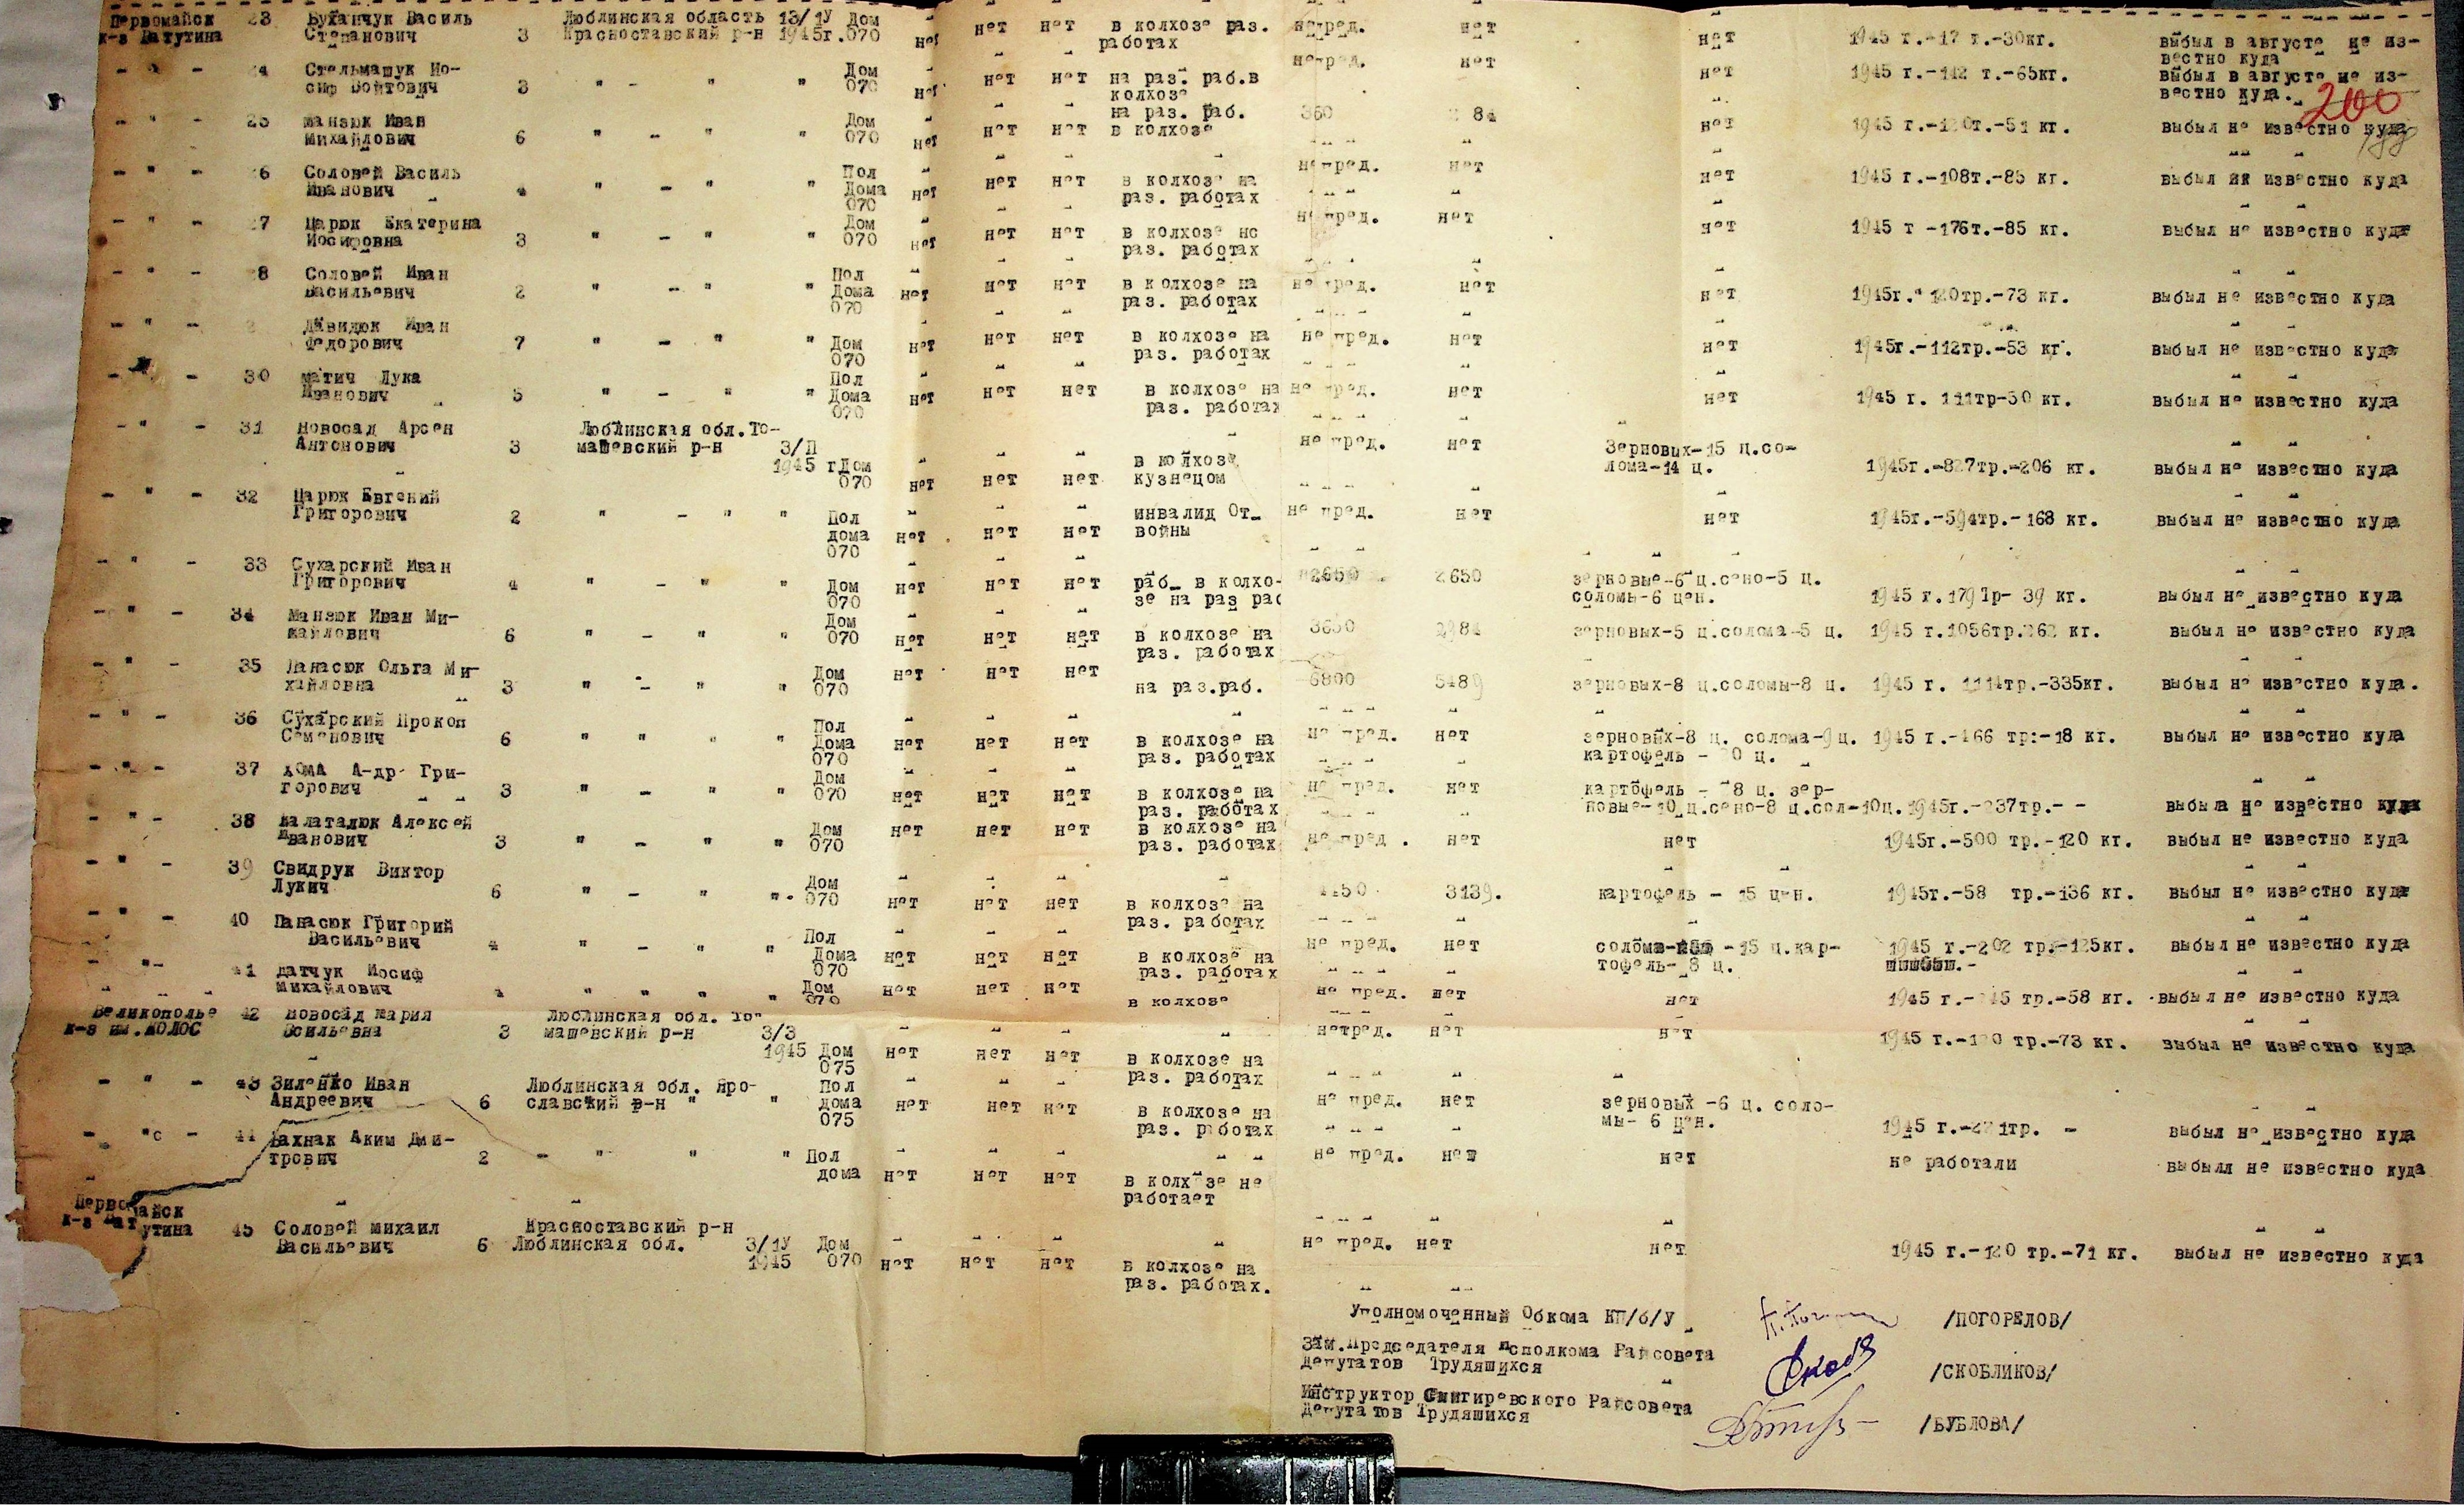 Первомайск 23 Буханчук Василь Люблинская область 13/1У Дом нет нет в колхозе раз. нет нет 1945 г.-17 т.-30кг. выбыл в августе не из-
к-з Ватутина Степанович 3 Красноставский р-н 1945г. 070 нет работах вестно куда
- " - 24 Стельмащук Ио- Дом нет нет на раз. раб.в нет нет 1945 г.-112 т.-65кг. выбыл в августе не из-
сиф Войтович 3 " - " " 070 нет колхозе вестно куда.
200
188
- " - 25 Манзюк Иван Дом на раз. раб. 84
Михайлович 6 " - " " 070 нет нет нет в колхозе нет 1945 г.-120т.-51 кг. выбыл не известно куда
- " - 26 Соловей Василь Пол не пред. нет
Иванович 4 " - " " Дома нет нет нет в колхозе на нет 1945 г.-108т.-85 кг. выбыл не известно куда
070 раз. работах
- " - 27 Царюк Екатерина Дом не пред. нет
Иосифовна 3 " - " " 070 нет нет нет в колхозе нс нет 1945 т -176т.-85 кг. выбыл не известно куда
раз. работах
- " - 28 Соловей Иван Пол
Васильевич 2 " - " " Дома нет нет нет в колхозе на не пред. нет нет 1945г.- 120тр.-73 кг. выбыл не известно куда
070 раз. работах
- " - Давидюк Иван
Федорович 7 " - " " Дом нет нет нет в колхозе на не пред. нет нет 1945г.-112тр.-53 кг. выбыл не известно куда
070 раз. работах
- " - 30 Матич Лука Пол
Иванович 5 " - " " Дома нет нет нет в колхозе на не пред. нет нет 1945 г. 111тр-50 кг. выбыл не известно куда
070 раз. работах
- " - 31 Новосад Арсен Люблинская обл.То-
Антонович 3 машевский р-н 3/П не пред. нет Зерновых-15 ц.со-
1945 г Дом в колхозе лома-14 ц. 1945г.-827тр.-206 кг. выбыл не известно куда
070 нет нет нет кузнецом
- " - 32 Царюк Евгений
Григорович 2 " - " " Пол инвалид От_ не пред. нет нет 1945г.-594тр.-168 кг. выбыл не известно куда
дома нет нет нет войны
070
- " - 33 Сухарский Иван 2650 2650 зерновые-6 ц.сено-5 ц.
Григорович 4 " - " " Дом нет нет нет раб_ в колхо- соломы-6 цен. 1945 г.179 Тр- 39 кг. выбыл не известно куда
070 зе на раз рас
- " - 34 Манзюк Иван Ми- Дом
хайлович 6 " - " " 070 нет нет нет в колхозе на 2984 зерновых-5 ц.солома-5 ц. 1945 г.1056тр.262 кг. выбыл не известно куда
раз. работах
- " - 35 Панасюк Ольга Ми- Дом нет нет нет
хайловна 3 " - " " 070 на раз.раб. 6800 5489 зерновых-8 ц.соломы-8 ц. 1945 г. 1114тр.-335кг. выбыл не известно куда.
- " - 36 Сухарский Прокоп Пол
Семенович 6 " " " " Дома нет нет нет в колхозе на не пред. нет зерновых-8 ц. солома-9 ц. 1945 г.-466 тр:-18 кг. выбыл не известно куда
070 раз. работах картофель - ц.
- " - 37 Хома А-др Гри- Дом
горович 3 " - " " 070 нет нет нет в колхозе на не пред. нет картофель - 8 ц. зер-
раз. работах новые-10 ц.сено-8 ц.сол-10ц. 1945г.-237тр.- - выбыл не известно куда
- " - 38 Алексей Дом нет нет нет в колхозе на
Иванович 3 " - " " 070 раз. работах не пред . нет нет 1945г.-500 тр.-120 кг. выбыл не известно куда
- " - 39 Свидрук Виктор Дом
Лукич 6 " - " ". 070 нет нет нет в колхозе на 3139. картофель - 15 цен. 1945г.-58 тр.-136 кг. выбыл не известно куда
раз. работах
- " - 40 Панасюк Григорий Пол
Васильевич 4 " - " " Дома нет нет нет в колхозе на не пред. нет - 15 ц.кар- 1945 г.-202 тр.-125кг. выбыл не известно куда
070 раз. работах тофель- 8 ц.
- "- 41 Датчук Иосиф Дом нет нет нет
Михайлович " " " " 070 в колхозе не пред. нет нет 1945 г.- тр.-58 кг. выбыл не известно куда
Великополье 42 Новосад Мария Люблинская обл. То-
к-з им.КОЛОС 3 машевский р-н 3/3 нет нет 1945 г.-120 тр.-73 кг. выбыл не известно куда
1945 Дом нет нет нет в колхозе на
075 раз. работах
- " - 43 Зиленко Иван Люблинская обл. Яро- Пол
Андреевич 6 славский р-н " " дома нет нет нет в колхозе на не пред. нет зерновых -6 ц. соло-
075 раз. работах мы- 6 цен. 1945 г.- тр. - выбыл не известно куда
- "с - 44 Пахнак Аким Дми-
трович 2 - " " " Пол не пред. нет нет не работали выбыл не известно куда
дома нет нет нет в колхозе не
работает
Первомайск
к-з Ватутина 45 Соловей Михаил Красноставский р-н
Васильевич 6 Люблинская обл. 3/1У Дом не пред. нет нет 1945 г.-120 тр.-71 кг. выбыл не известно куда
1945 070 нет нет нет в колхозе на
раз. работах.
Уполномоченный Обкома КП/б/У /ПОГОРЕЛОВ/
Зам.Председателя исполкома Райсовета
Депутатов Трудящихся /СКОБЛИКОВ/
Инструктор Снигиревского Райсовета
Депутатов Трудящихся /БУБЛОВА/